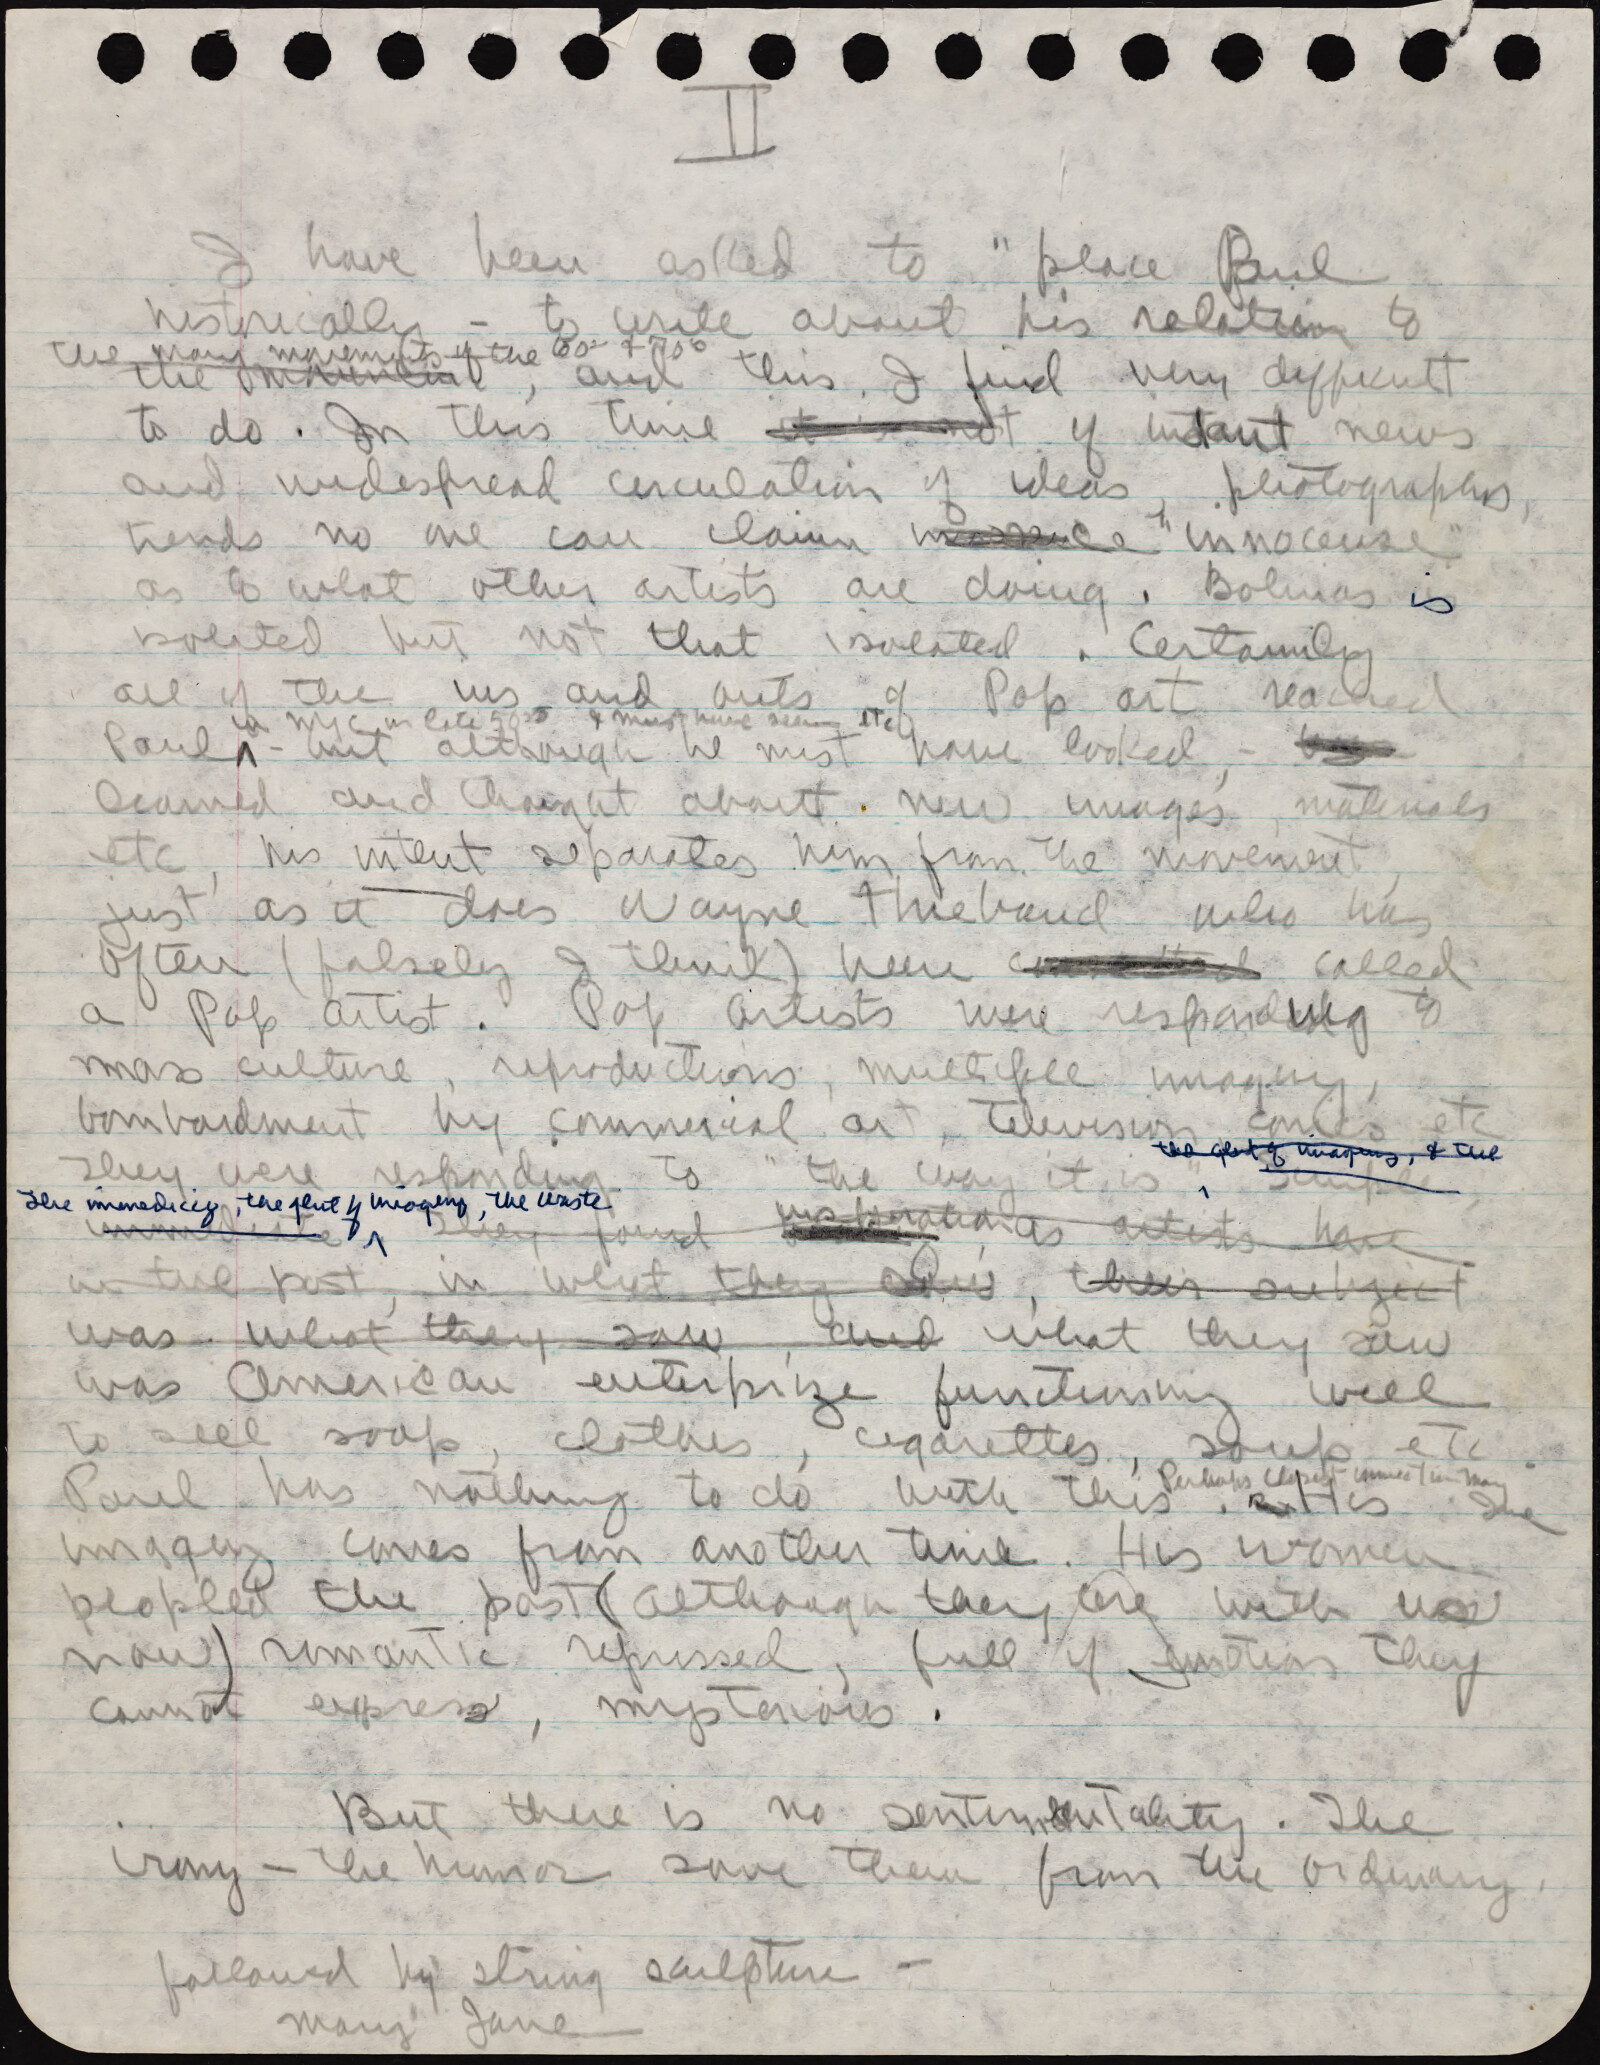 II
I have been asked to "place Paul
historically - to write about his relation to
the many movements of the 60s & 70s
the , and this I find very difficult
to do. In this time it is not of instant news
and widespread circulation of ideas, photographs,
trends no one can claim "innocense"
as to what other artists are doing. Bolinas is
isolated but not that isolated. Certainly
all of the ins and outs of Pop art reached
in NYC in late 50s & must have seen etc
Paul - but although he must have looked, -
learned and thought about new images, materials
etc, his intent separates him from the movement,
just as it does Wayne Thiebaud who has
often (falsely I think) been called
a Pop artist. Pop artists were responding to
mass culture, reproductions, multiple imagery,
bombardment by commercial art, television, comics etc
the glut of imagery, & the
They were responding to "the way it is" simple,
The immediacy, the glut of imagery, the waste
immediate. They found inspiration, as artists have
in the past, in what they saw, their subject
was what they saw, and what they saw
was American enterprize functioning well
to sell soap, clothes, cigarettes, soup etc.
Perhaps closest connection Mary
Paul has nothing to do with this. His Jane
imagery comes from another time. His women
peopled the past (although they are with us
now) romantic repressed, full of emotions they
cannot express, mysterious.
But there is no sentimentality. The
irony - the humor save them from the ordinary.
followed by string sculpture -
Mary Jane